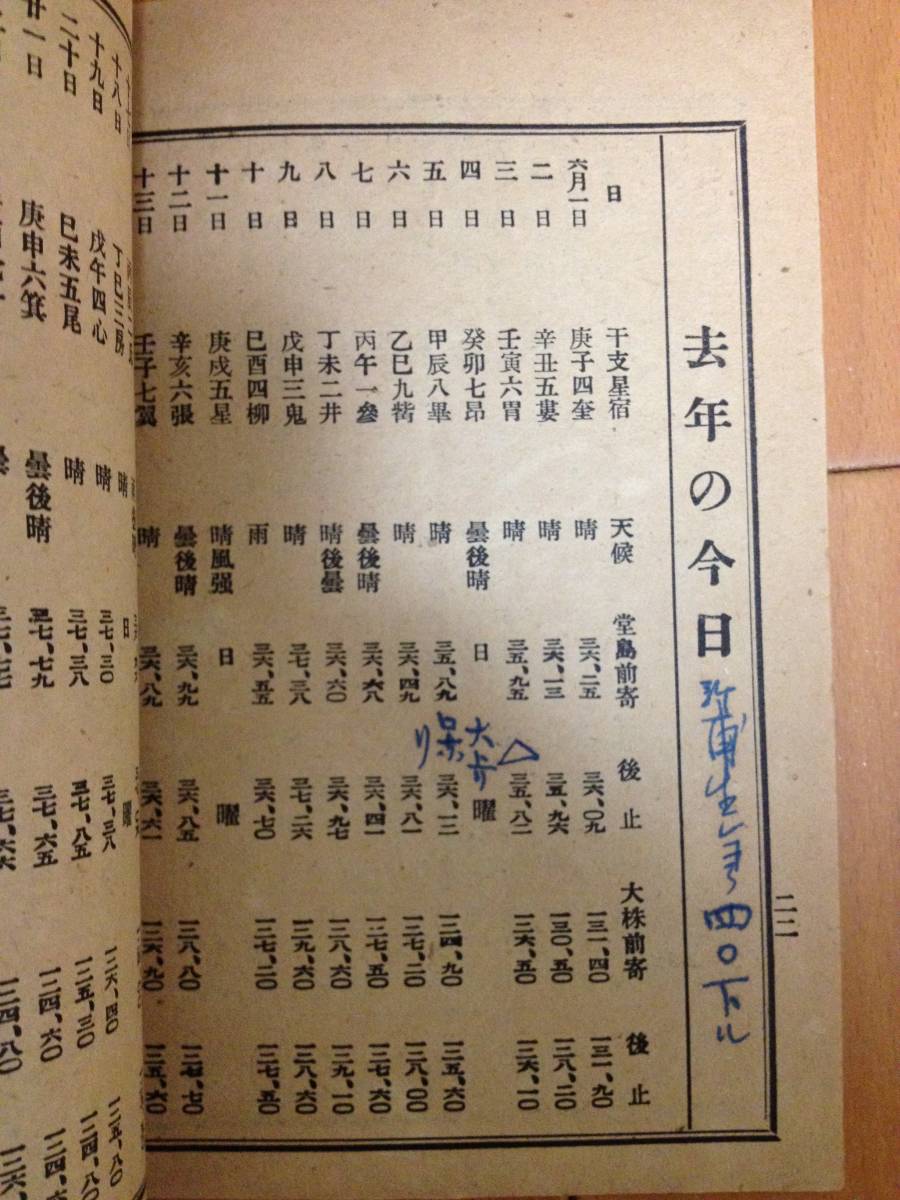 二二
去年の今日
四〇下ル
日 干支星宿 天候 堂島前寄 後止 大株前寄 後止
六月一日 庚子四奎 晴 三六、二五 三六、〇九 一三一、四〇 一三一、九〇
二日 辛丑五婁 晴 三六、一三 三五、九六 一三〇、五〇 一二八、二〇
三日 壬寅六胃 晴 三五、九五 三五、八二 一二六、五〇 一二六、一〇
△
四日 癸卯七昴 曇後晴 日 曜
五日 甲辰八畢 晴 三五、八九 三六、一二 一二四、九〇 一二五、六〇
六日 乙巳九觜 晴 三六、四九 三六、八一 一二七、二〇 一二八、〇〇
七日 丙午一參 曇後晴 三六、六八 三六、四一 一二七、五〇 一二七、六〇
八日 丁未二井 晴後曇 三六、六〇 三六、九七 一二八、六〇 一二九、一〇
九日 戊申三鬼 晴 三七、三八 三七、二六 一二九、六〇 一二八、六〇
十日 己酉四柳 雨 三六、五五 三六、七〇 一二七、二〇 一二七、五〇
十一日 庚戌五星 晴風强 日 曜
十二日 辛亥六張 曇後晴 三六、九九 三六、八五 一二八、八〇 一二七、七〇
十三日 壬子七翼 晴 三六、八九 三六、六一 一二六、九〇 一二五、六〇
十八日 丁巳三房 晴 日 曜
十九日 戊午四心 晴 三七、三〇 三七、三八 一二六、四〇 一二五、八〇
二十日 己未五尾 晴 三七、三八 三七、八五 一二五、三〇 一二四、八〇
廿一日 庚申六箕 曇後晴 三七、七九 三七、六五 一二四、六〇